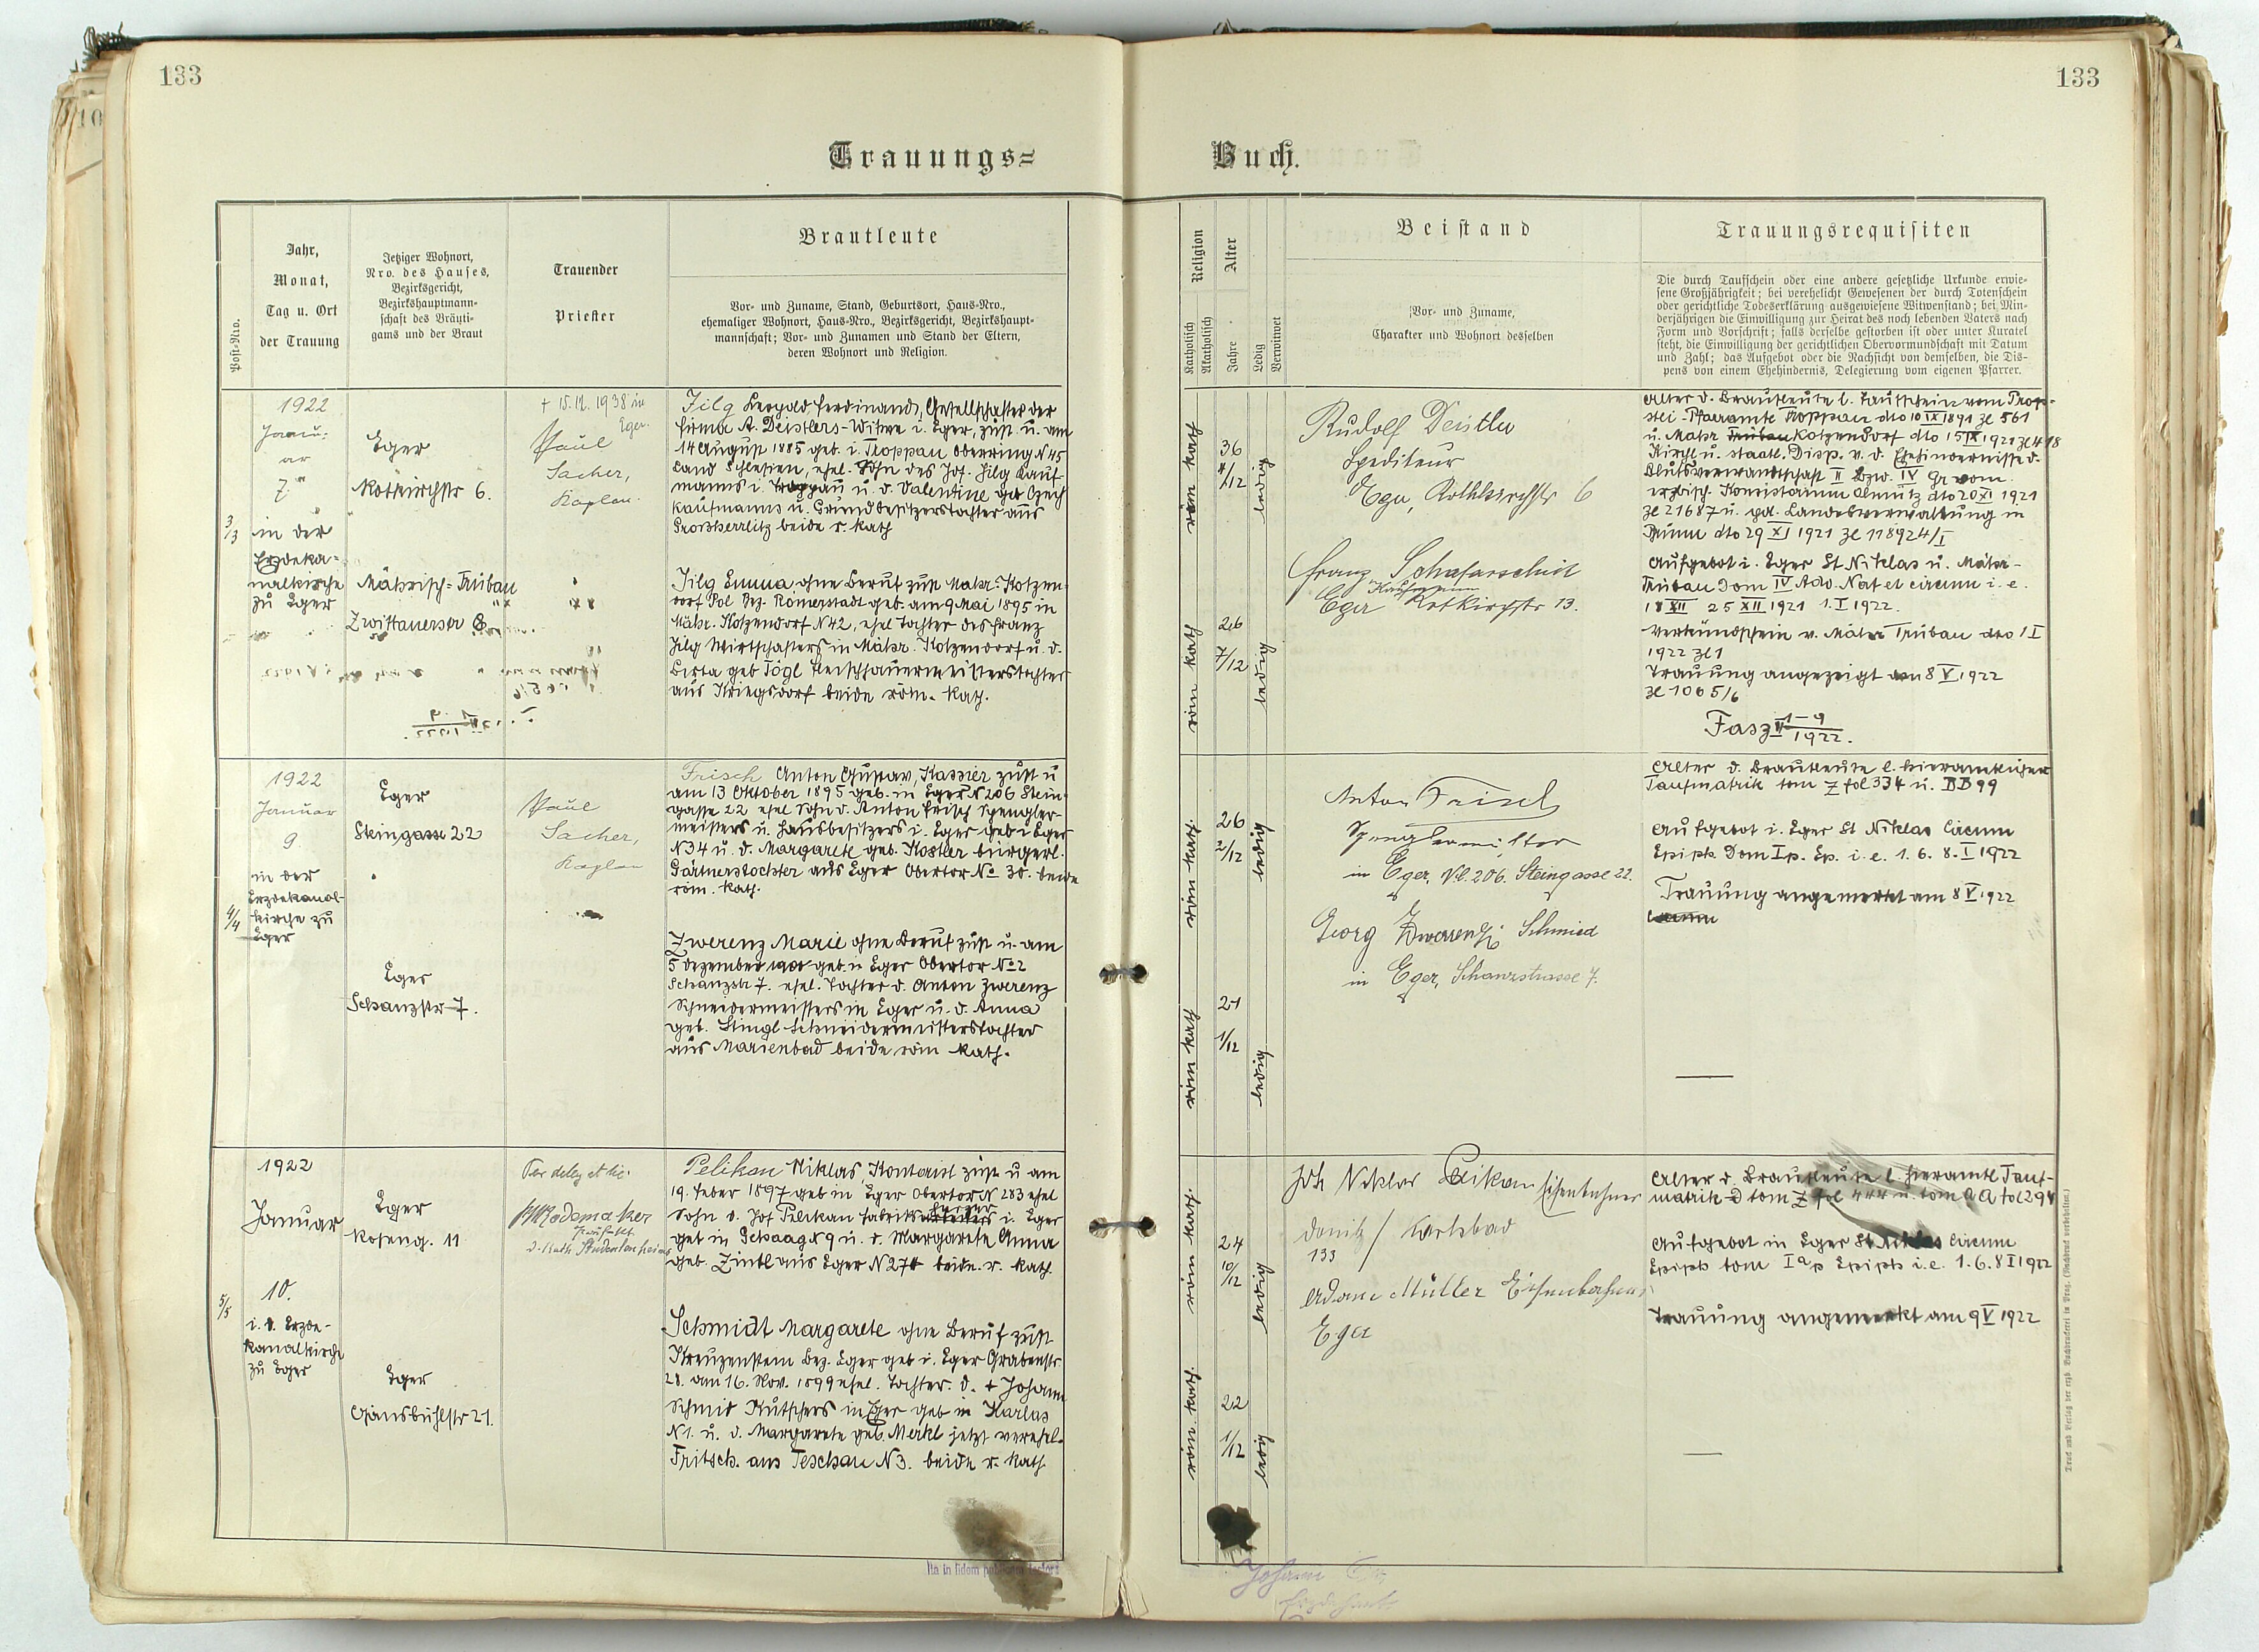 133
133
Trauungs=
Buch.
Post-Nro.
Jahr,
Monat,
Tag u. Ort
der Trauung
Jetziger Wohnort,
Nro. des Hauses,
Bezirksgericht,
Bezirkshauptmann-
schaft des Bräuti-
gams und der Braut
Trauender
Priester
Brautleute
Vor- und Zuname, Stand, Geburtsort, Haus-Nro.,
ehemaliger Wohnort, Haus-Nro., Bezirksgericht, Bezirkshaupt-
mannschaft; Vor- und Zunamen und Stand der Eltern,
deren Wohnort und Religion.
Religion
Katholisch
Akatholisch
Alter
Jahre
Ledig
Verwitwet
Beistand
Vor- und Zuname,
Charakter und Wohnort desselben
Trauungsrequisiten
Die durch Taufschein oder eine andere gesetzliche Urkunde erwie-
sene Großjährigkeit; bei verehelicht Gewesenen der durch Totenschein
oder gerichtliche Todeserklärung ausgewiesene Witwenstand; bei Min-
derjährigen die Einwilligung zur Heirat des noch lebenden Vaters nach
Form und Vorschrift; falls derselbe gestorben ist oder unter Kuratel
steht, die Einwilligung der gerichtlichen Obervormundschaft mit Datum
und Zahl; das Aufgebot oder die Nachsicht von demselben, die Dis-
pens von einem Ehehindernis, Delegierung vom eigenen Pfarrer.
3/3
1922
Janu-
ar
7
in der
Erzdeka-
nalkirche
zu Eger
Eger
Rotkirchstr 6.
Mährisch=Trübau
Zwittauerstr 8
+ 15.12.1938 in
Eger.
Paul
Sacher,
Kaplan.
Jilg Leopold Ferdinand, Gesellschafter der
Firma A. Deistlers-Witwe i. Eger, zust. u. am
14 August 1885 geb. i. Troppau Oberring N 45
Land Schlesien, ehel. Sohn des Jos. Jilg Kauf-
manns i. Troppau u. d. Valentine geb Czech
Kaufmanns u. Grundbesitzerstochter aus
Grossherrlitz beide r. kath
Jilg Emma ohne Beruf zust Mähr. Kotzen-
dorf Pol Bez. Römerstadt geb. am 9 Mai 1895 in
Mähr. Kotzendorf N 42, ehel Tochter des Franz
Jilg Wirtschafters in Mähr. Kotzendorf u. d.
Berta geb Tögl Fleischhauermeisterstochter
aus Kriegsdorf beide röm. kath.
röm kath
36
4/12
ledig
röm kath
26
7/12
ledig
Rudolf Deistler
Spediteur
Eger, Rothkirchstr 6
Franz Schafarschik
Kaufmann
Eger Rotkirchstr 13.
Alter d. Brautleute l. Taufschein vom Prop-
stei-Pfarramte Troppau dto 10 IX 1891 Zl 561
u. Mähr Trübau Kotzendorf dto 15 IX 1921 Zl 418
Kirchl u. staatl. Disp. v. d. Ehehindernisse d.
Blutsverwandtschaft II bzw. IV Gr vom
erzbisch. Konsistorium Olmütz dto 20 XI 1921
Zl 21687 u. pol. Landesverwaltung in
Brünn dto 29 XI 1921 Zl 118924/I
Aufgebot i. Eger St Niklas u. Mähr-
Trübau Dom IV Adv. Nat et circum i. e.
18 XII 25 XII 1921 1. I 1922.
Verkündschein v. Mähr Trübau dto 1 I
1922 Zl 1
Trauung angezeigt am 8 V. 1922
Zl 1005/6
Fasz II 1-9/1922.
4/4
1922
Januar
9.
in der
Erzdekanal-
kirche zu
Eger
Eger
Steingasse 22
Eger
Schanzstr 7.
Paul
Sacher,
Kaplan
Frisch Anton Gustav, Kassier zust u
am 13 Oktober 1895 geb. in Eger N 206 Stein-
gasse 22 ehel Sohn d. Anton Frisch Spengler-
meisters u. Hausbesitzers i. Eger geb i Eger
N 34 u. d. Margarete geb. Kostler bürgerl.
Gärtnerstochter aus Eger Obertor No 30. beide
röm. kath.
Zwerenz Marie ohne Beruf zust u. am
5 Dezember 1900 geb. in Eger Obertor No 2
Schanzstr 7. ehel. Tochter d. Anton Zwerenz
Schneidermeisters in Eger u. d. Anna
geb. Stingl Schneidermeisterstochter
aus Marienbad beide röm kath.
röm kath.
26
2/12
ledig
röm kath
21
1/12
ledig
Anton Frisch
Spenglermeister
in Eger, No. 206. Steingasse 22.
Georg Zwerenz, Schmied
in Eger, Schanzstrasse 7.
Alter d. Brautleute l. hieramtlicher
Taufmatrik tom Z fol 334 u. BB 99
Aufgebot i. Eger St Niklas Circum
Epiph. Dom I p. Ep. i. e. 1. 6. 8. I 1922
Trauung angemerkt am 8 V. 1922
5/5
1922
Januar
10.
i. d. Erzde-
kanalkirche
zu Eger
Eger
Roseng. 11
Eger
Gänsbühlstr 21.
Per deleg et lic.
Rademaker
Präfekt
d. kath. Studentenheims
Pelikan Niklas, Kontorist zust u am
19. Feber 1897 geb in Eger Obertor N 283 ehel
Sohn d. Jos Pelikan Fabriks i. Eger
geb in Schaag N 9 u. d. Margarete Anna
geb. Zintl aus Eger N 274 beide r. kath.
Schmidt Margarete ohne Beruf zust
Kreuzenstein Bez. Eger geb i. Eger Grabenstr
28. am 16. Nov. 1899 ehel. Tochter d. + Johann
Schmid Kutschers in Eger geb in Harlas
N 1. u. d. Margarete geb. Merkl jetzt verehel.
Fritsch. aus Teschau N 3. beide r. kath
röm kath.
24
10/12
ledig
röm kath.
22
1/12
ledig
Joh Niklas Pelikan Eisenbahner
Donitz / Karlsbad
133
Adam Müller Eisenbahner
Eger
Alter d. Brautleute l. hieramtl Tauf-
matrik tom Z fol 444 u. tom AA fol 294
Aufgebot in Eger St Niklas Circum
Epiph tom I a p Epiph i. e. 1. 6. 8 I 1922
Trauung angemerkt am 9 V 1922
Ita in fidem
Johann
Druck und Verlag der erzb. Buchdruckerei in Prag. (Nachdruck vorbehalten.)